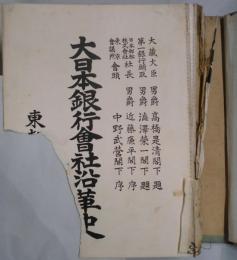 大藏大臣 男爵 高橋是清閣下 題
第一銀行頭取 男爵 澁澤榮一閣下 題
日本郵船株式會社 社長 男爵 近藤廉平閣下 序
東京商業會議所 會頭 中野武營閣下 序
大日本銀行會社沿革史
東